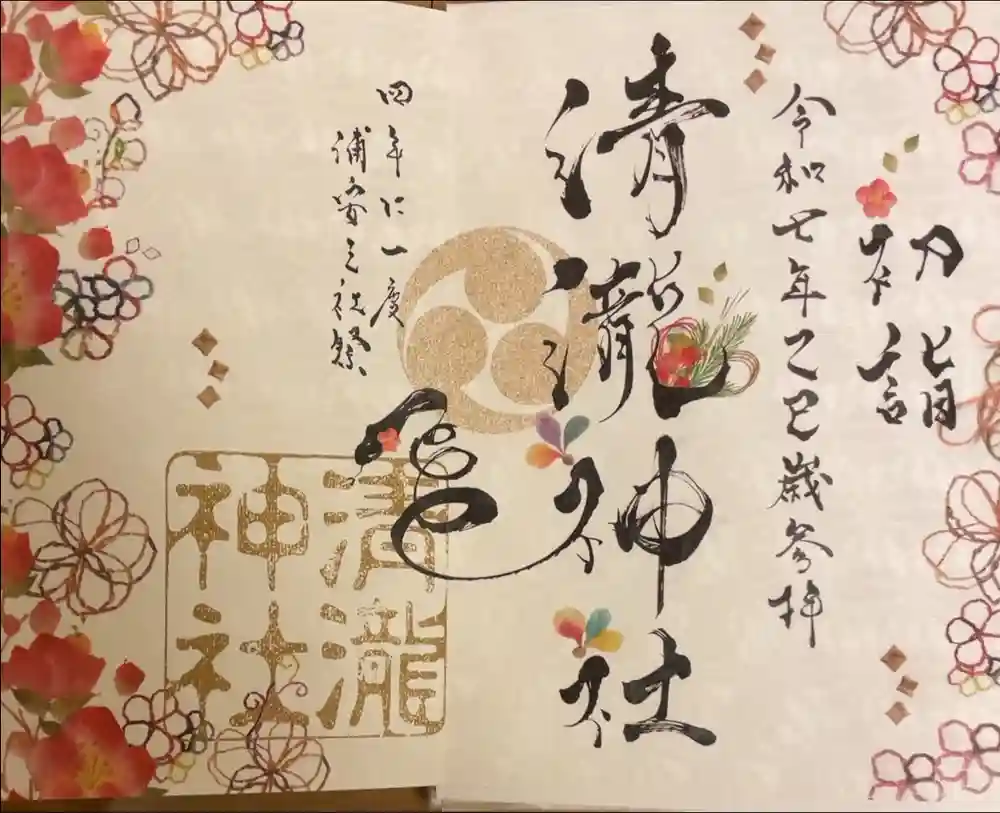 初詣
令和七年乙巳歳参拝
清瀧神社
巳
四年に一度
浦安三社祭
清瀧
神社